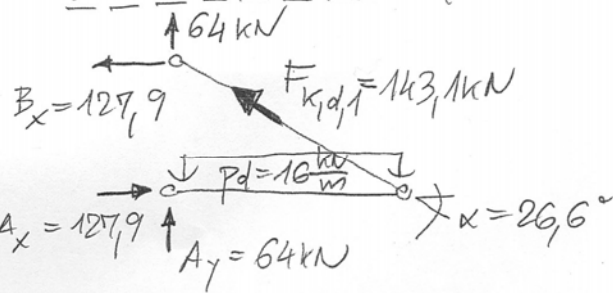 64 kN
Bx = 127,9
Fk,d,1 = 143,1 kN
pd = 16 kN/m
Ax = 127,9
Ay = 64 kN
α = 26,6°